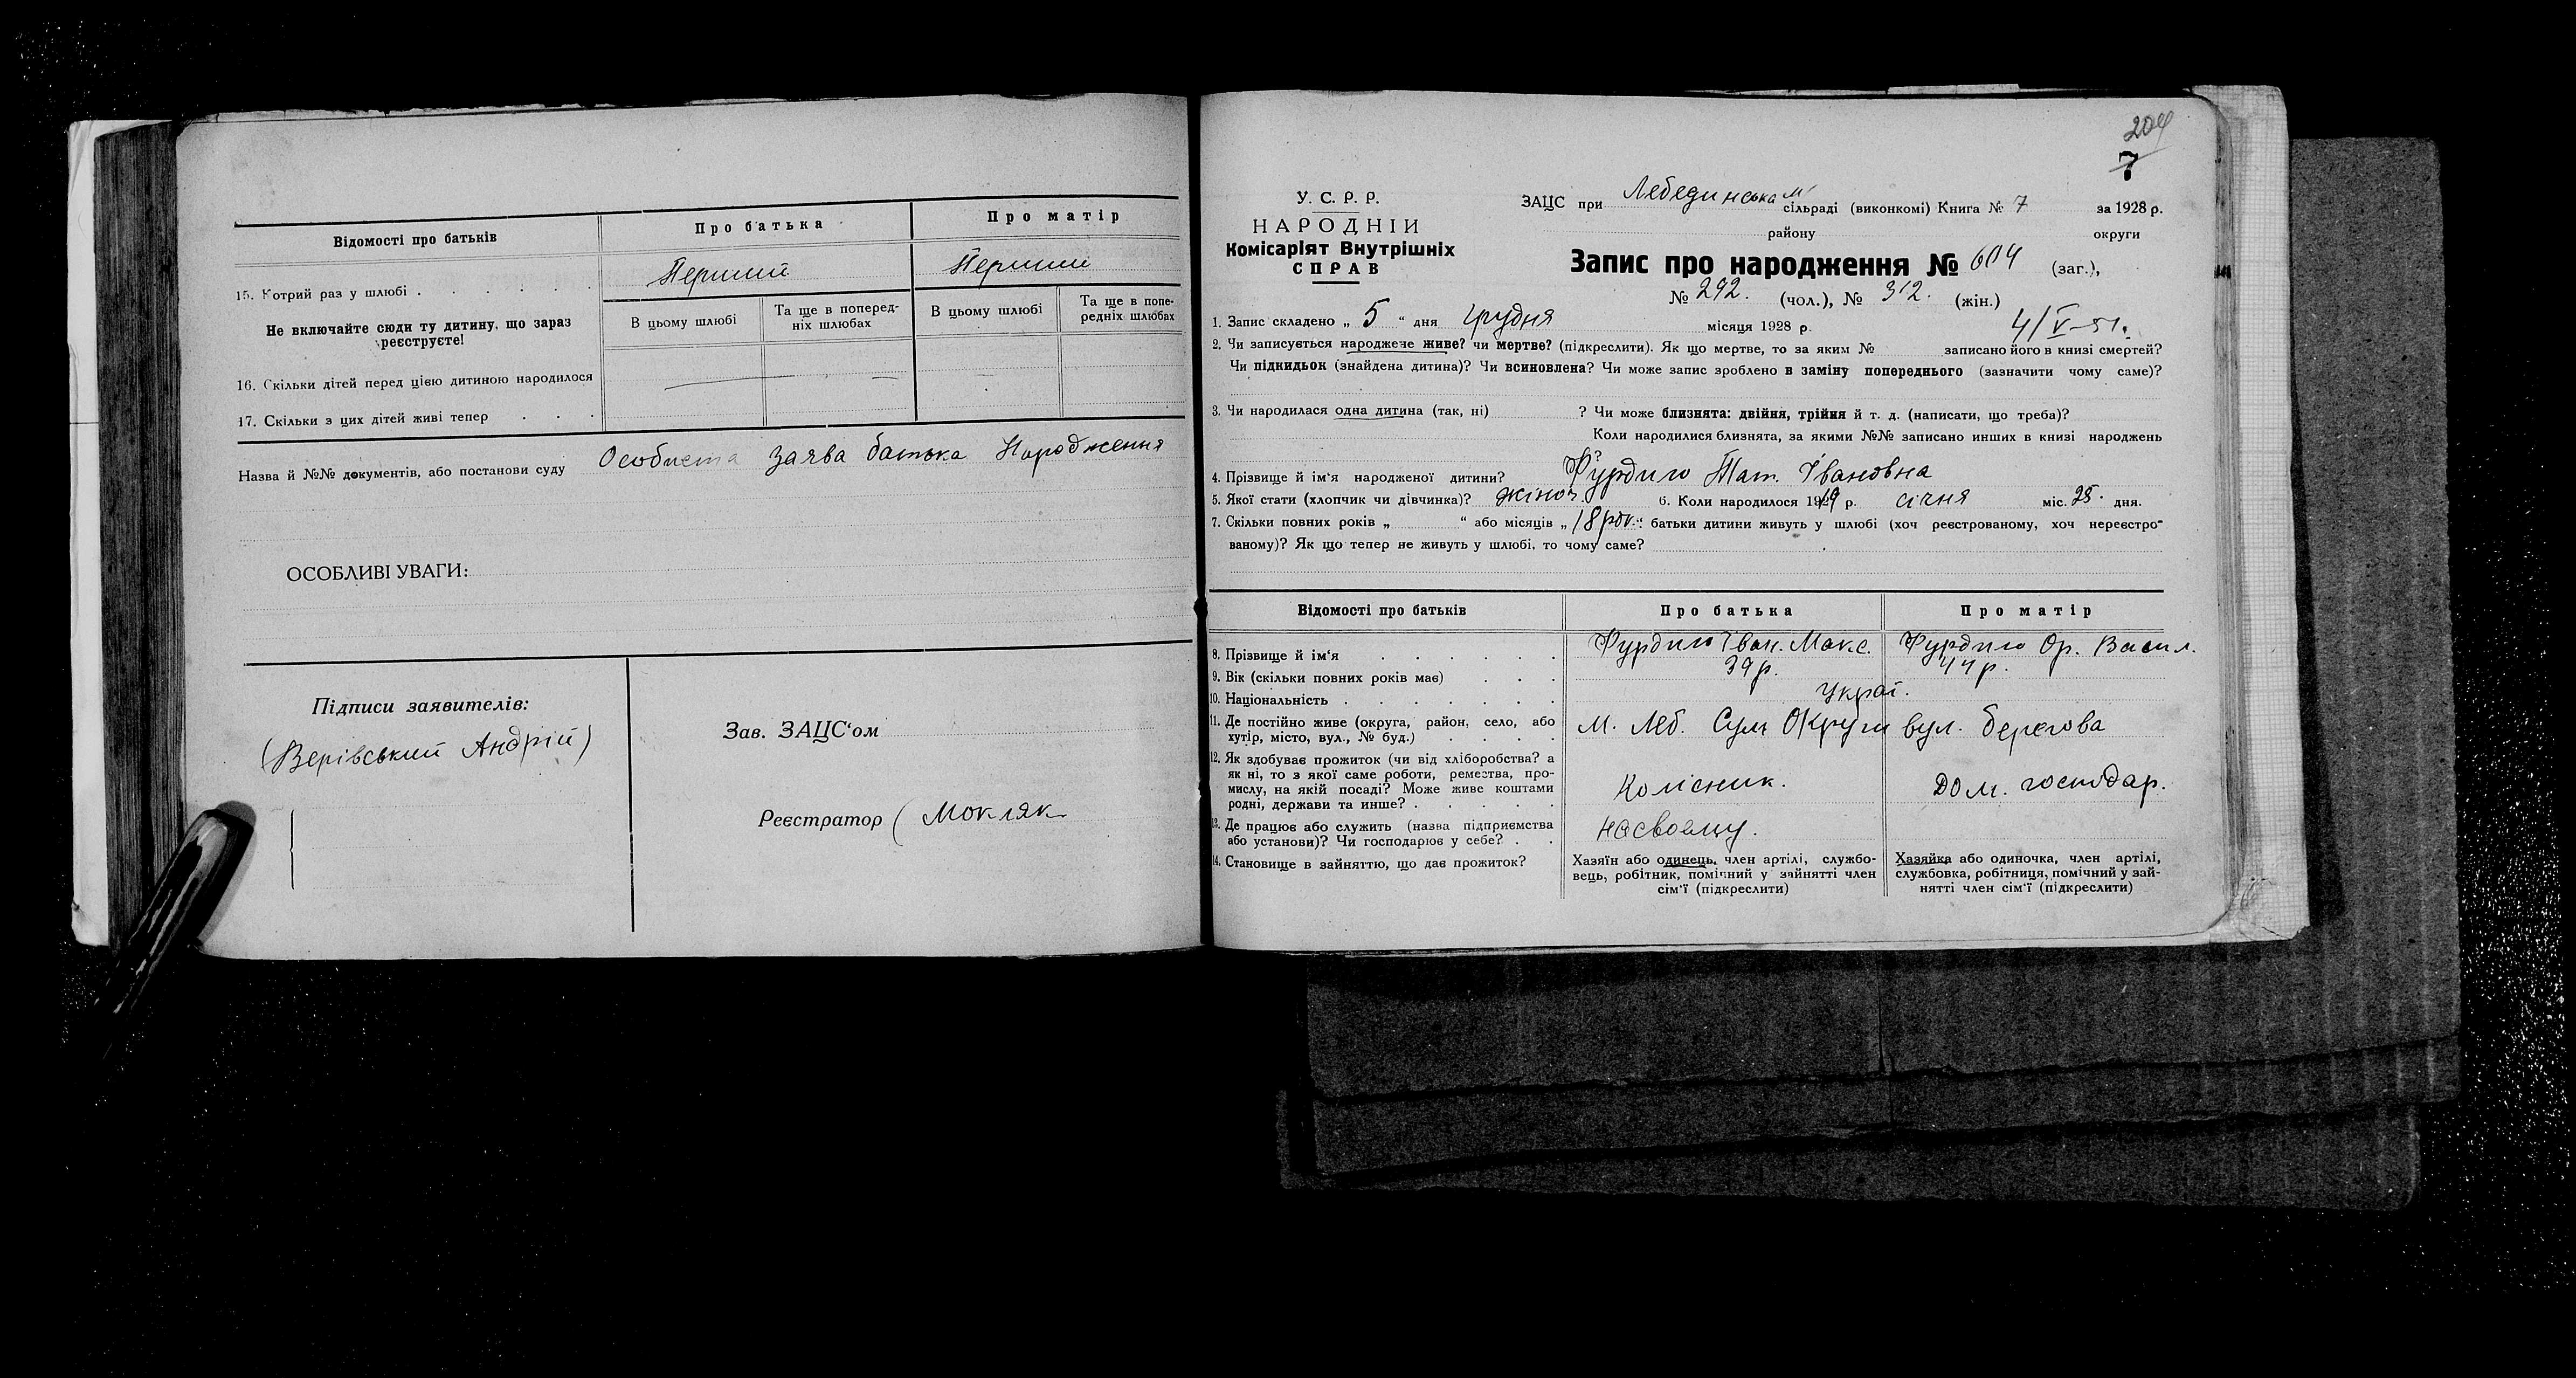 Відомості про батьків
Про батька
Про матір
15. Котрий раз у шлюбі
Перший
Перший
Не включайте сюди ту дитину, що зараз реєструєте!
В цьому шлюбі
Та ще в попередніх шлюбах
В цьому шлюбі
Та ще в попередніх шлюбах
16. Скільки дітей перед цією дитиною народилося
17. Скільки з цих дітей живі тепер
Назва й №№ документів, або постанови суду Особиста заява батька Народження
ОСОБЛИВІ УВАГИ:
Підписи заявителів:
(Верівський Андрій)
Зав. ЗАЦС'ом
Реєстратор (Мокляк
204
7
У. С. Р. Р.
НАРОДНІЙ
Комісаріят Внутрішніх
СПРАВ
ЗАЦС при Лебединська м сільраді (виконкомі) Книга № 7 за 1928 р.
району округи
Запис про народження № 604 (заг.),
№ 292. (чол.), № 312. (жін.)
1. Запис складено „ 5 “ дня грудня місяця 1928 р.
4/V-51.
2. Чи записується народжене живе? чи мертве? (підкреслити). Як що мертве, то за яким № записано його в книзі смертей?
Чи підкидьок (знайдена дитина)? Чи всиновлена? Чи може запис зроблено в заміну попереднього (зазначити чому саме)?
3. Чи народилася одна дитина (так, ні) ? Чи може близнята: двійня, трійня й т. д. (написати, що треба)?
Коли народилися близнята, за якими №№ записано инших в книзі народжень
4. Прізвище й ім'я народженої дитини? Фурдило Тат. Івановна
5. Якої стати (хлопчик чи дівчинка)? жіноч. 6. Коли народилося 1919 р. січня міс. 25. дня.
7. Скільки повних років „ “ або місяців „ 18 рок. “ батьки дитини живуть у шлюбі (хоч реєстрованому, хоч нереєстро-
ваному)? Як що тепер не живуть у шлюбі, то чому саме?
Відомості про батьків
Про батька
Про матір
8. Прізвище й ім'я
Фурдило Іван. Макс.
Фурдило Ор. Васил.
9. Вік (скільки повних років має)
39 р.
44 р.
10. Національність
Украї.
11. Де постійно живе (округа, район, село, або
хутір, місто, вул., № буд.)
М. Леб. Сум Округи вул. Берегова
12. Як здобуває прожиток (чи від хліборобства? а
як ні, то з якої саме роботи, ремества, про-
мислу, на якій посаді? Може живе коштами
родні, держави та инше?
Колісник.
Дом. господар.
13. Де працює або служить (назва підприємства
або установи)? Чи господарює у себе?
14. Становище в зайняттю, що дає прожиток?
Хазяїн або одинець, член артілі, службо-
вець, робітник, помічний у зайнятті член
сім'ї (підкреслити)
Хазяйка або одиночка, член артілі,
службовка, робітниця, помічний у зай-
нятті член сім'ї (підкреслити)